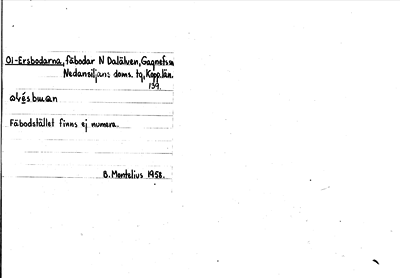 Ol-Ersbodarna, fäbodar N Dalälven, Gagnefs sn
Nedansiljans doms. tg, Kopp. län.
139.
Fäbodstället finns ej numera.
B. Montelius 1958.